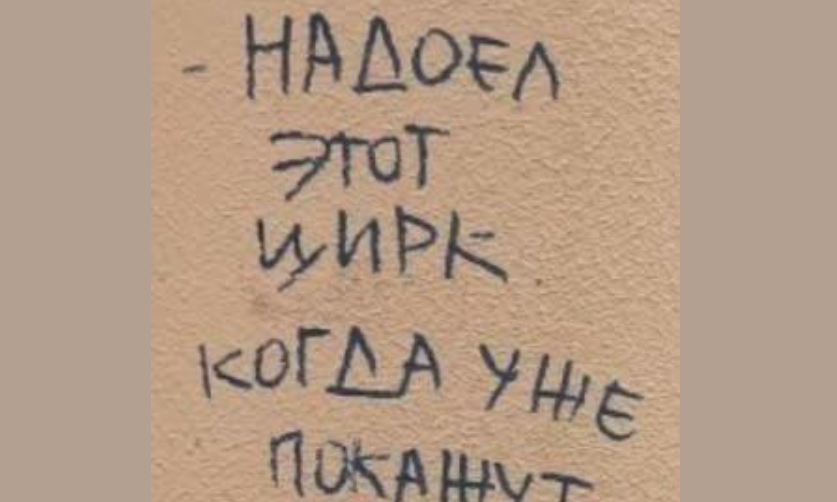 - НАДОЕЛ
ЭТОТ
ЦИРК
КОГДА УЖЕ
ПОКАЖУТ